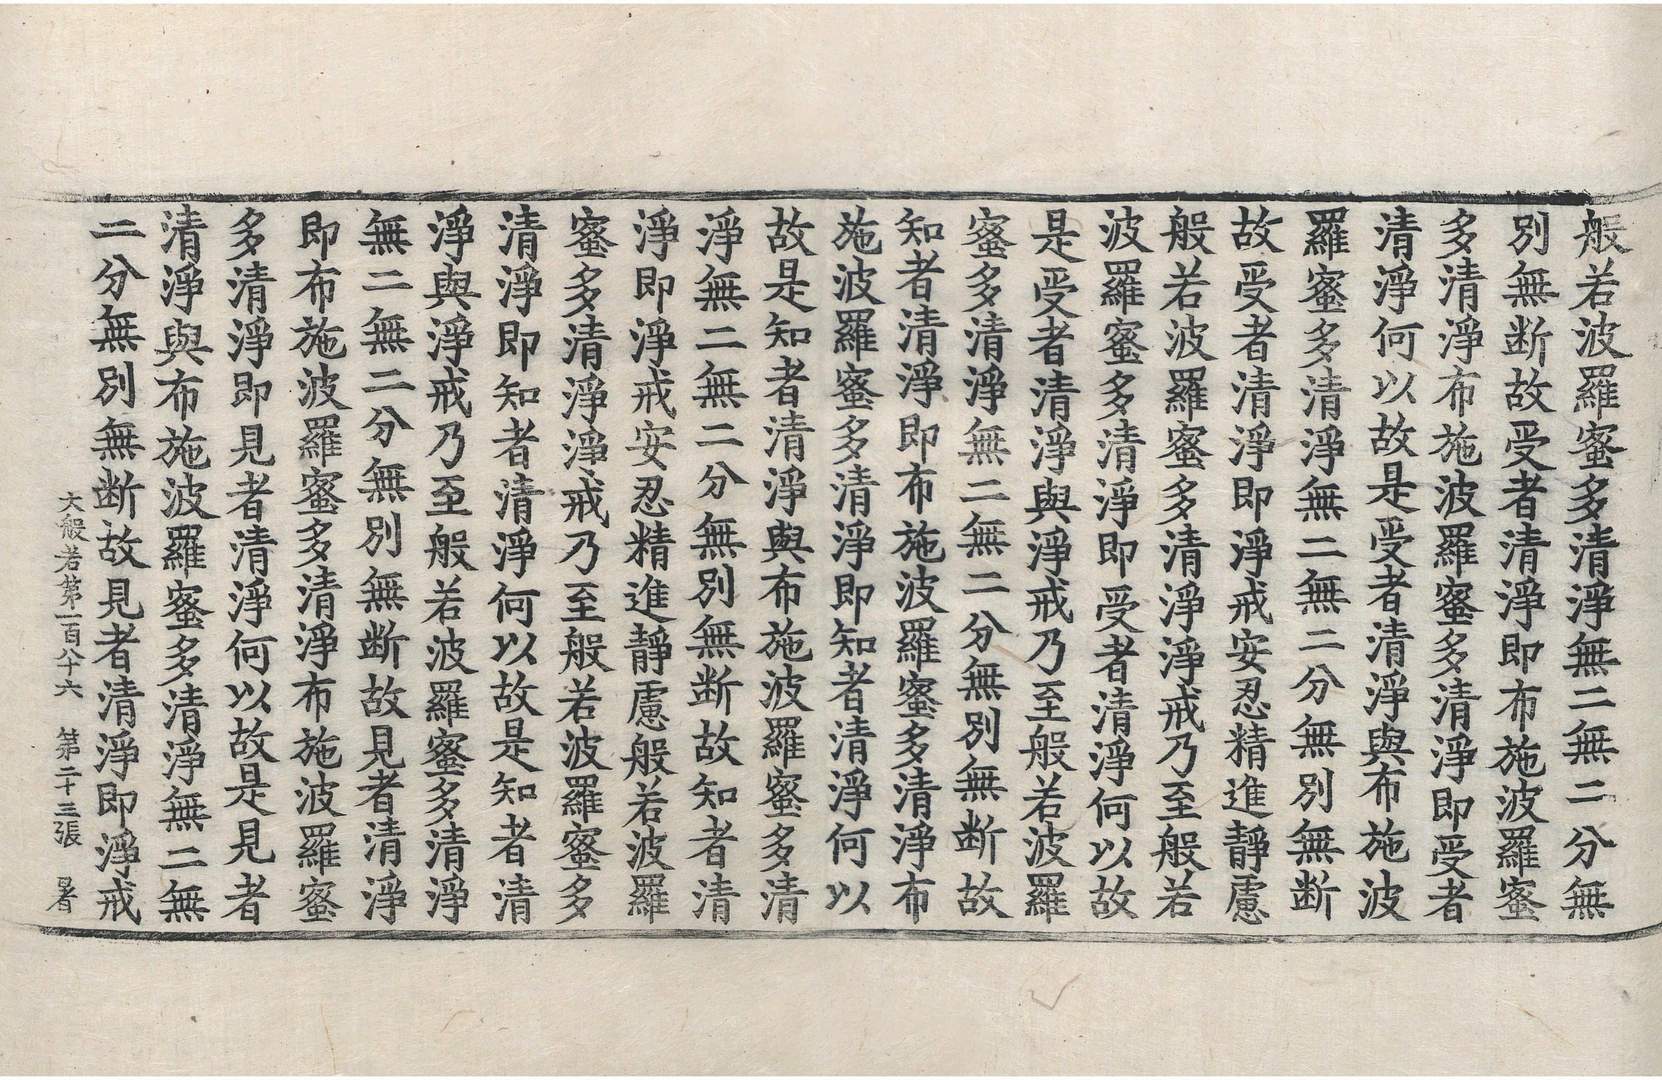 般若波羅蜜多清淨無二無二分無
別無断故受者清淨即布施波羅蜜
多清淨布施波羅蜜多清淨即受者
清淨何以故是受者清淨與布施波
羅蜜多清淨無二無二分無別無断
故受者清淨即淨戒安忍精進靜慮
般若波羅蜜多清淨淨戒乃至般若
波羅蜜多清淨即受者清淨何以故
是受者清淨與淨戒乃至般若波羅
蜜多清淨無二無二分無別無断故
知者清淨即布施波羅蜜多清淨布
施波羅蜜多清淨即知者清淨何以
故是知者清淨與布施波羅蜜多清
淨無二無二分無別無断故知者清
淨即淨戒安忍精進靜慮般若波羅
蜜多清淨淨戒乃至般若波羅蜜多
清淨即知者清淨何以故是知者清
淨與淨戒乃至般若波羅蜜多清淨
無二無二分無別無断故見者清淨
即布施波羅蜜多清淨布施波羅蜜
多清淨即見者清淨何以故是見者
清淨與布施波羅蜜多清淨無二無
二分無別無断故見者清淨即淨戒
大般若第一百八十六 第二十三張 暑